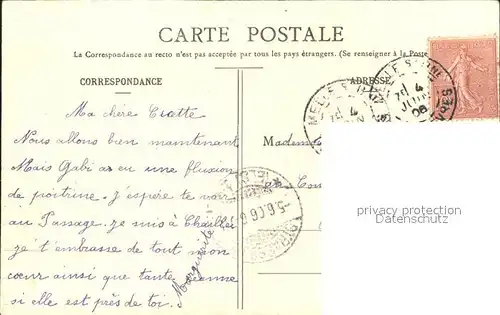 CARTE POSTALE
La Correspondance au recto n'est pas acceptée par tous les pays étrangers. (Se renseigner à la Poste
CORRESPONDANCE
ADRESSE
Ma chère
Nous allons bien maintenant
Mais Gabi a eu une fluxion
de poitrine. J'espère te voir
au Passage. je suis à
je t'embrasse de tout mon
coeur ainsi que tante Jeanne
si elle est près de toi.
Marguerite
Madem
privacy protection
Datenschutz
MELLE
4
JUIN
08
5-6